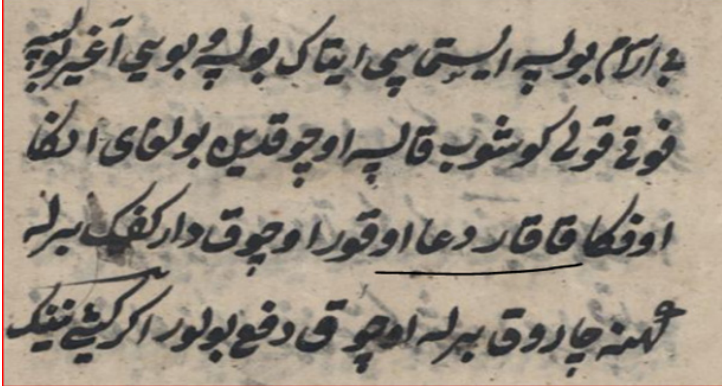 بی ارام بولسه ایستماسی ایتاک بولسه و بویی آغیر بولسه
قوتی قولی کوشوب قالسه اوچوقدین بولغای انکا
اوفکا قاقار دعا اوقور اوچوق دار کفک بیرله
کهنه چاروق بیرله اوچوق دفع بولور اکر کیشی نینک